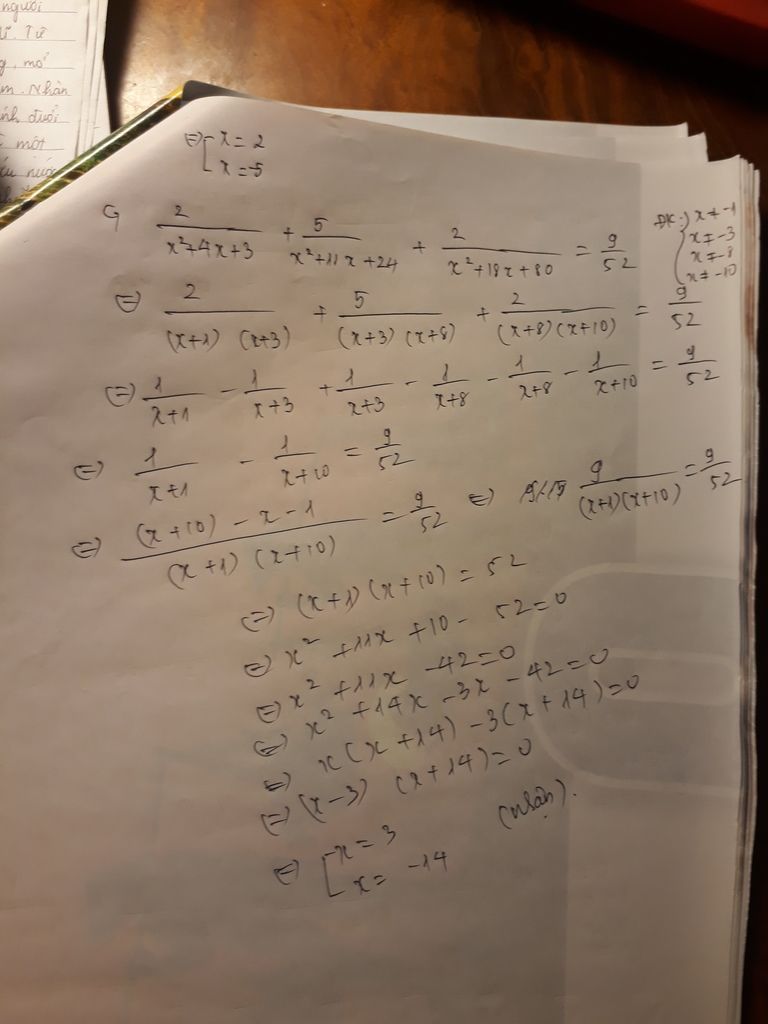 người
lĩ. Từ
g, mở
m. Nhân
ính đuổi
một
ếu nước
⇔ [ x = 2
x = -5
C, 2/(x²+4x+3) + 5/(x²+11x+24) + 2/(x²+18x+80) = 9/52
ĐK: { x ≠ -1
x ≠ -3
x ≠ -8
x ≠ -10
⇔ 2/((x+1)(x+3)) + 5/((x+3)(x+8)) + 2/((x+8)(x+10)) = 9/52
⇔ 1/(x+1) - 1/(x+3) + 1/(x+3) - 1/(x+8) - 1/(x+8) - 1/(x+10) = 9/52
⇔ 1/(x+1) - 1/(x+10) = 9/52
⇔ ((x+10) - x - 1)/((x+1)(x+10)) = 9/52 ⇔ 9/((x+1)(x+10)) = 9/52
⇔ (x+1)(x+10) = 52
⇔ x² + 11x + 10 - 52 = 0
⇔ x² + 11x - 42 = 0
⇔ x² + 14x - 3x - 42 = 0
⇔ x(x+14) - 3(x+14) = 0
⇔ (x-3) (x+14) = 0
⇔ [ x = 3 (nhận).
x = -14